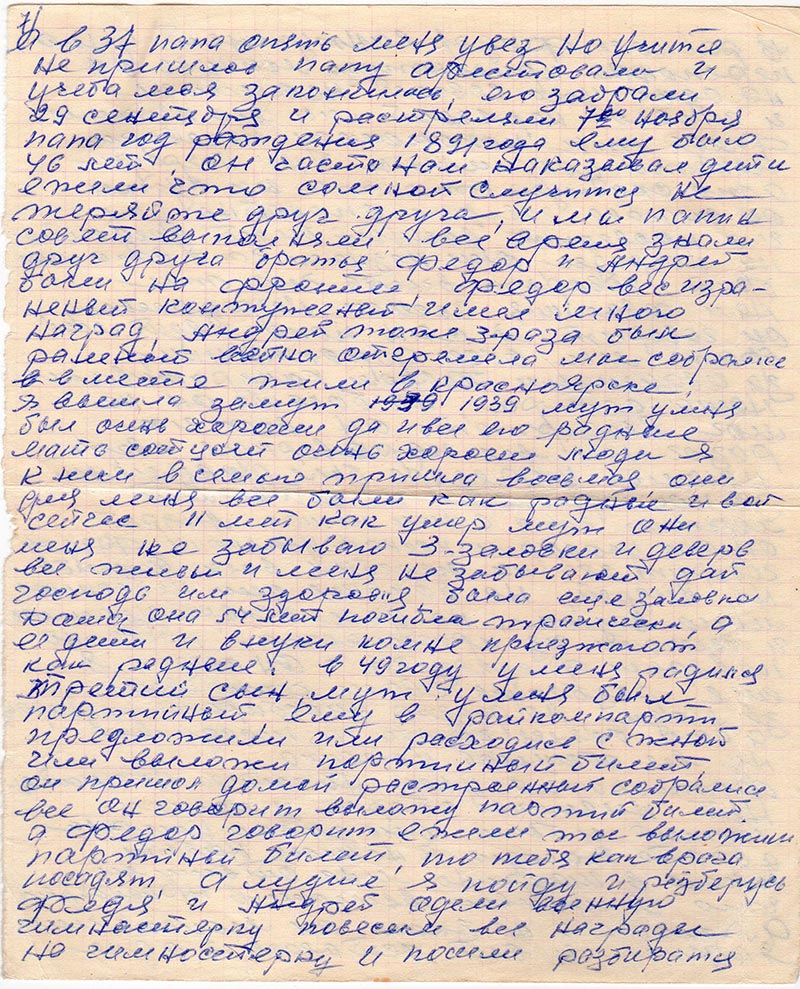 7/
И в 37 папа опять меня увез но учится
не пришлось папу арестовали и
учеба моя закончилась, его забрали
29 сентября и растреляли 7го ноября
папа год рождения 1891 года ему было
46 лет, он часто нам наказывал дити
ежили что сомной случится не
теряйте друг друга, и мы папин
совет выполняли все время знали
друг друга братья Федор и Андрей
были на фронти, Федор весизра-
неный контуженый, имел много
наград, Андрей тоже 3-раза был
раменый война отгремела мы собрались
в вместе жили в Красноярске,
я вышла замуж 1939 мужу меня
был очень хороший да и все его радные
мать сотцом очень хороши люди я
к ним в семью пришла восьмая они
для меня все были как радные и вот
сейчас 11 лет как умер муж они
меня не забываю 3-заловки и деверь
все живы и меня не забывают дай
господь им здоровья, была еще заловка
она 54 лет погибла трагически, а
ее дети и внуки комне приезжают
как радные. в 49 году у меня радился
третий сын, муж у меня был
партийный ему в райкомпарти
предложили или расходись с жной
или выложи партийный билет
он пришол домой растроеный собрались
все он говорит выложу партий билет.
а Федор говорит ежели ты выложиш
партйный билет, то тебя как врага
посадят, а лудше я пойду и разберусь
Федя и Андрей адели военную
гимнастерку повесили все награды
на гимностерку и пошли разбиратся